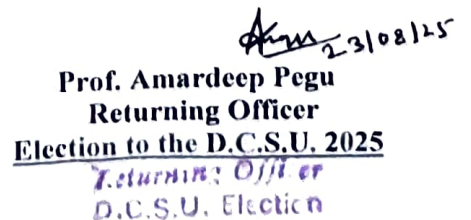 23/08/25
Prof. Amardeep Pegu
Returning Officer
Election to the D.C.S.U. 2025
Returning Officer
D.C.S.U. Election